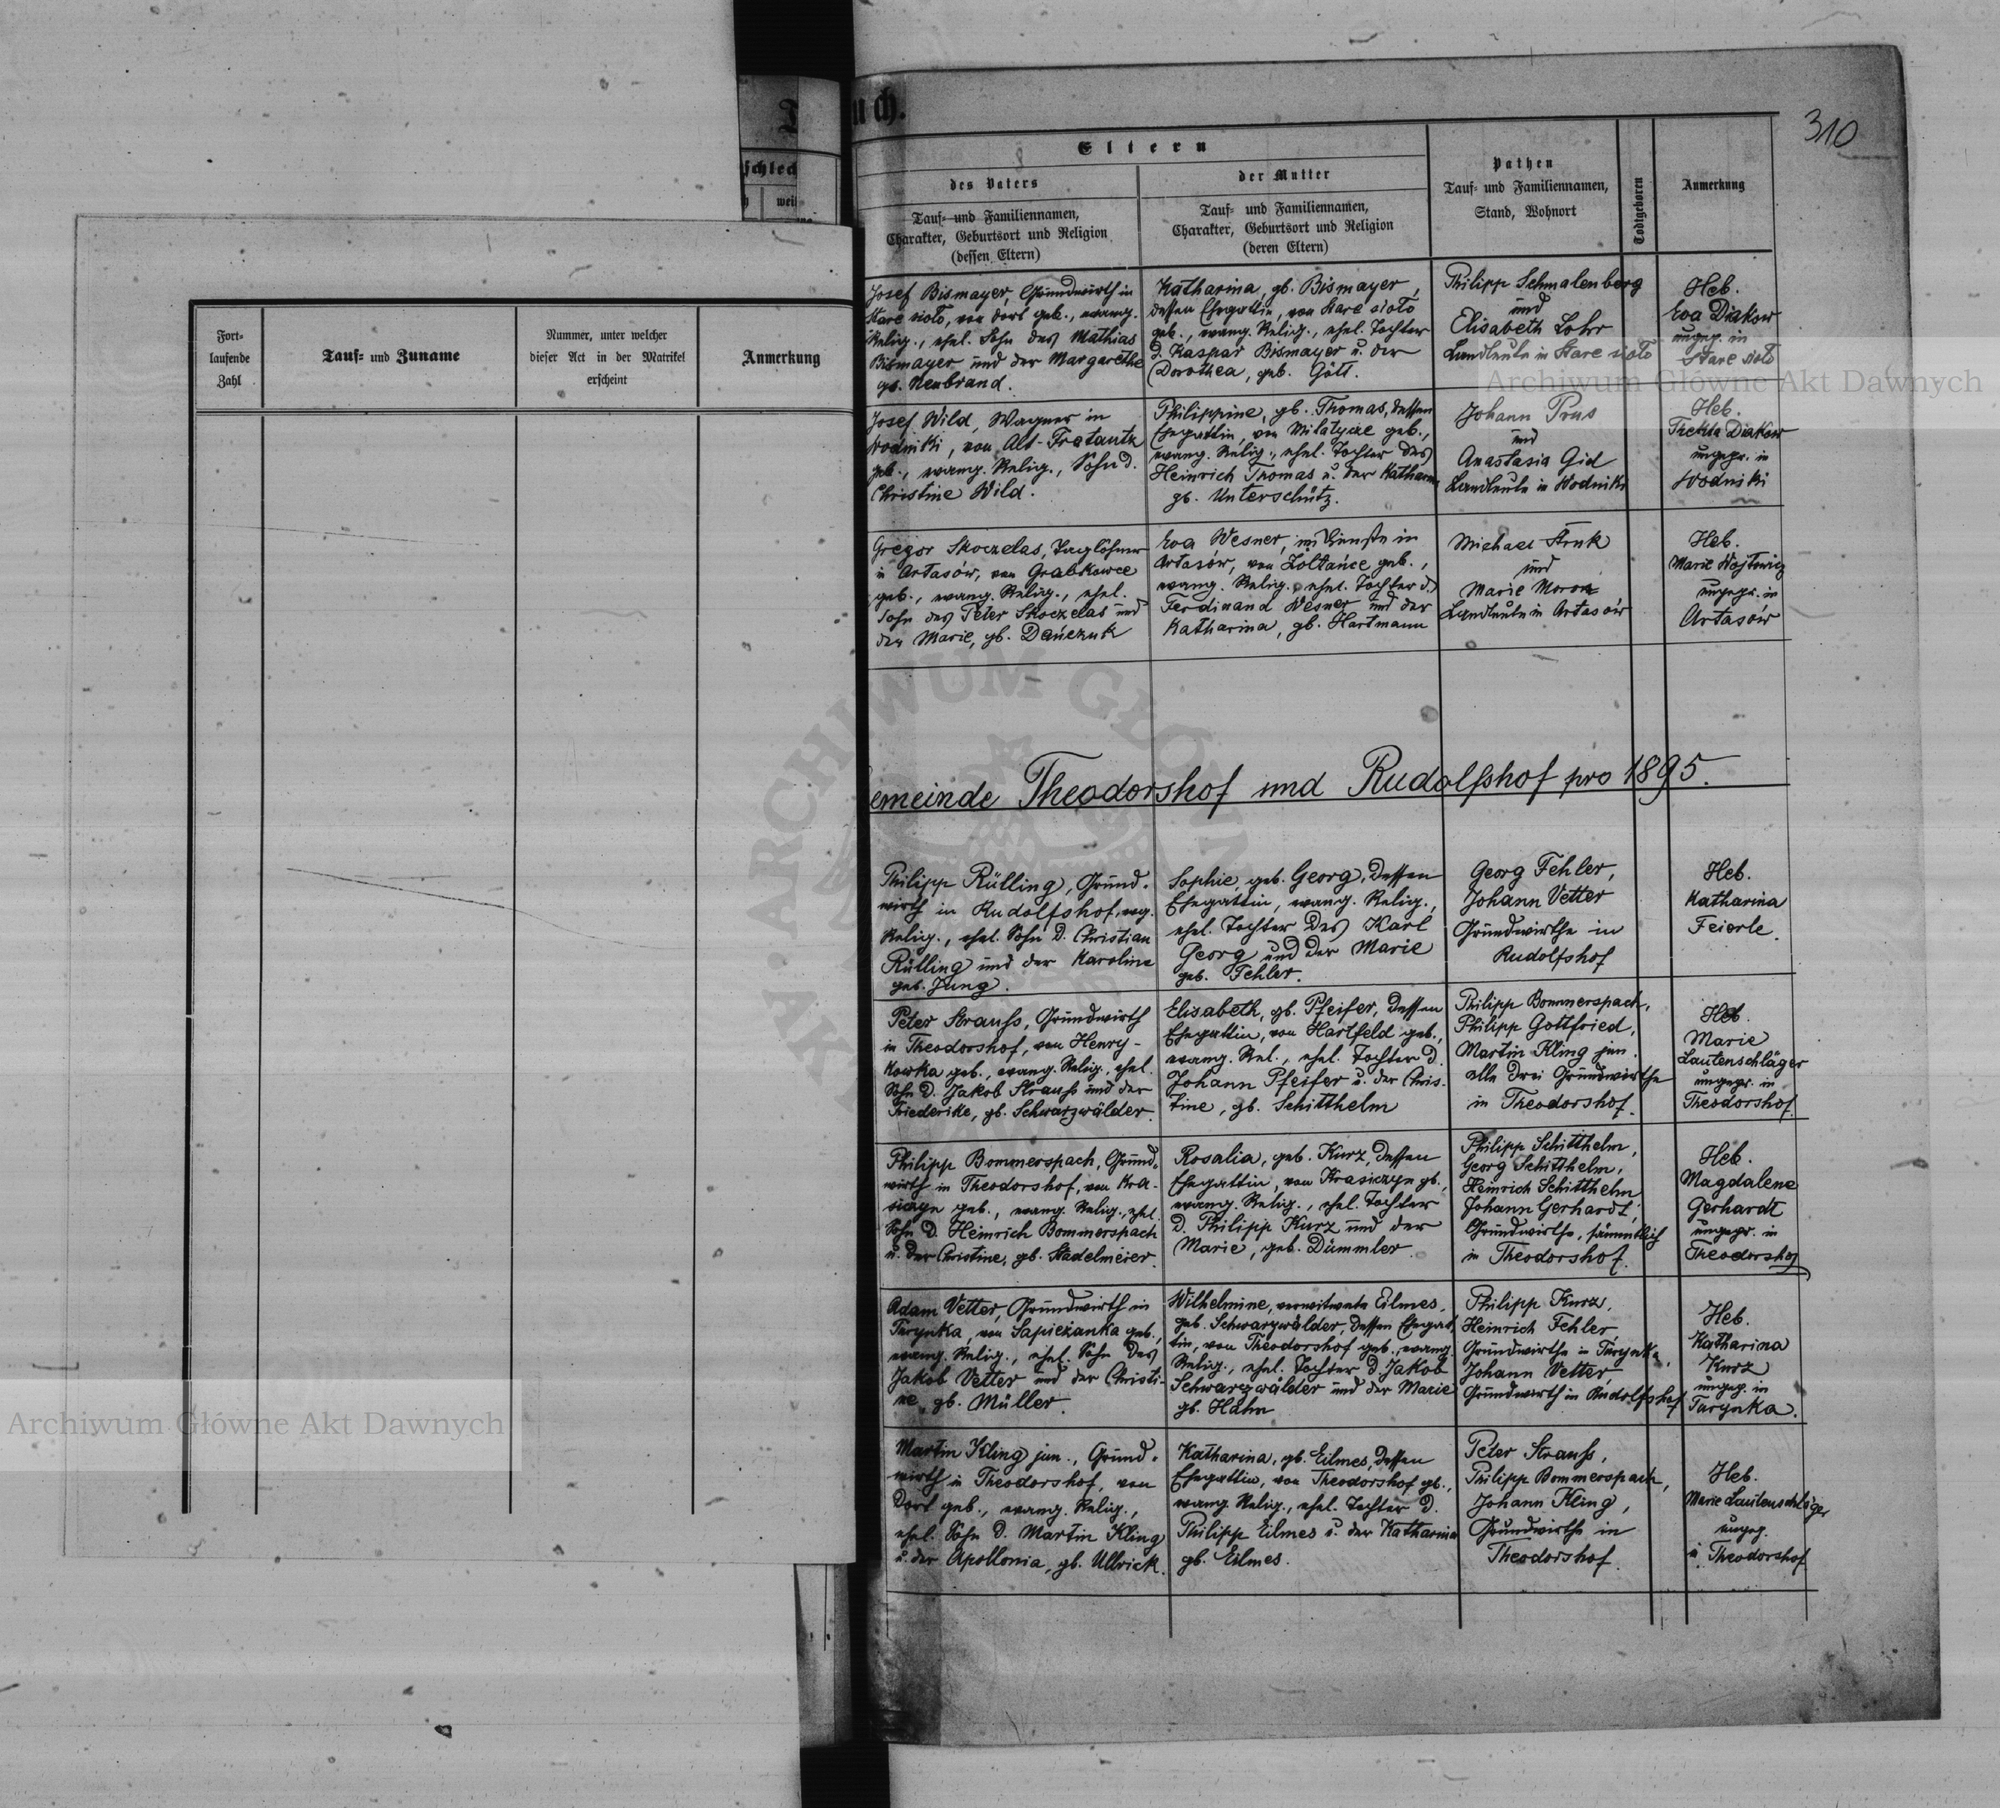 uch.
310
schlech
weib
Fort-
laufende
Zahl
Tauf- und Zuname
Nummer, unter welcher
dieser Act in der Matrikel
erscheint
Anmerkung
Eltern
des Vaters
Tauf- und Familiennamen,
Charakter, Geburtsort und Religion
(dessen Eltern)
der Mutter
Tauf- und Familiennamen,
Charakter, Geburtsort und Religion
(deren Eltern)
Pathen
Tauf- und Familiennamen,
Stand, Wohnort
Todtgeboren
Anmerkung
Josef Bismayer, Grundwirth in
Stare siolo, von dort geb., evang.
Relig., ehel. Sohn des Mathias
Bismayer und der Margarethe
gb. Neubrand.
Katharina, gb. Bismayer,
dessen Ehegattin, von Stare siolo
geb., evang. Relig., ehel. Tochter
d. Kaspar Bismayer u. der
Dorothea, geb. Gött.
Philipp Schmalenberg
und
Elisabeth Lohr
Landleute in Stare siolo
Heb.
Eva Diakow
ungepr. in
Stare siolo
Josef Wild, Wagner in
Wodniki, von Alt-Fratautz
geb., evang. Relig., Sohn d.
Christine Wild.
Philippine, gb. Thomas, dessen
Ehegattin, von Milatycze geb.,
evang. Relig., ehel. Tochter des
Heinrich Thomas u. der Katharina
gb. Unterschütz.
Johann Prus
und
Anastasia Gid
Landleute in Wodniki
Heb.
Thekla Diakow
ungepr. in
Wodniki
Gregor Skoczelas, Taglöhner
in Artasów, von Grabkowce
geb., evang. Relig., ehel.
Sohn des Peter Skoczelas und
der Marie, gb. Dańczuk
Eva Wesner, im Dienste in
Artasów, von Żołtańce geb.,
evang. Relig., ehel. Tochter d.
Ferdinand Wesner und der
Katharina, gb. Hartmann
Michael Struk
und
Marie Moroz
Landleute in Artasów
Heb.
Marie Wojtowicz
ungepr. in
Artasów
emeinde Theodorshof und Rudolfshof pro 1895.
Philipp Rülling, Grund-
wirth in Rudolfshof, evg.
Relig., ehel. Sohn d. Christian
Rülling und der Karoline
geb. Jung.
Sophie, geb. Georg, dessen
Ehegattin, evang. Relig.,
ehel. Tochter des Karl
Georg und der Marie
geb. Fehler.
Georg Fehler,
Johann Vetter
Grundwirthe in
Rudolfshof
Heb.
Katharina
Feierle.
Peter Strauss, Grundwirth
in Theodorshof, von Henry-
kowka geb., evang. Relig., ehel.
Sohn d. Jakob Strauss und der
Friederike, gb. Schwarzwälder.
Elisabeth, gb. Pfeifer, dessen
Ehegattin, von Hartfeld geb.,
evang. Rel., ehel. Tochter d.
Johann Pfeifer u. der Chris-
tine, gb. Schitthelm
Philipp Bommerspach,
Philipp Gottfried,
Martin Kling jun.
alle drei Grundwirthe
in Theodorshof.
Heb.
Marie
Lautenschläger
ungepr. in
Theodorshof.
Philipp Bommerspach, Grund-
wirth in Theodorshof, von Kra-
siczyn geb., evang. Relig., ehel.
Sohn d. Heinrich Bommerspach
u. der Christine, gb. Stadelmeier.
Rosalia, geb. Kurz, dessen
Ehegattin, von Krasiczyn gb.,
evang. Relig., ehel. Tochter
d. Philipp Kurz und der
Marie, geb. Dümmler.
Philipp Schitthelm,
Georg Schitthelm,
Heinrich Schitthelm
Johann Gerhardt,
Grundwirthe, sämmtlich
in Theodorshof.
Heb.
Magdalene
Gerhardt
ungepr. in
Theodorshof
Adam Vetter, Grundwirth in
Tarynka, von Sapieżanka geb.,
evang. Relig., ehel. Sohn des
Jakob Vetter und der Christi-
ne, gb. Müller.
Wilhelmine, verwitwete Eilmes,
geb. Schwarzwälder, dessen Ehegat-
tin, von Theodorshof geb., evang.
Relig., ehel. Tochter d. Jakob
Schwarzwälder und der Marie
gb. Hahn
Philipp Kurz,
Heinrich Fehler
Grundwirthe in Tarynka,
Johann Vetter,
Grundwirth in Rudolfshof
Heb.
Katharina
Kurz
ungep. in
Tarynka.
Martin Kling jun., Grund-
wirth in Theodorshof, von
dort geb., evang. Relig.,
ehel. Sohn d. Martin Kling
u. der Apollonia, gb. Ullrick.
Katharina, gb. Eilmes, dessen
Ehegattin, von Theodorshof gb.,
evang. Relig., ehel. Tochter d.
Philipp Eilmes u. der Katharina
gb. Eilmes.
Peter Strauss,
Philipp Bommerspach,
Johann Kling,
Grundwirthe in
Theodorshof.
Heb.
Marie Lautenschläger
ungep.
in Theodorshof
Archiwum Główne Akt Dawnych
Archiwum Główne Akt Dawnych